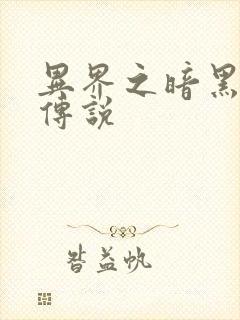 異界之暗黑
傳說
昝益帆